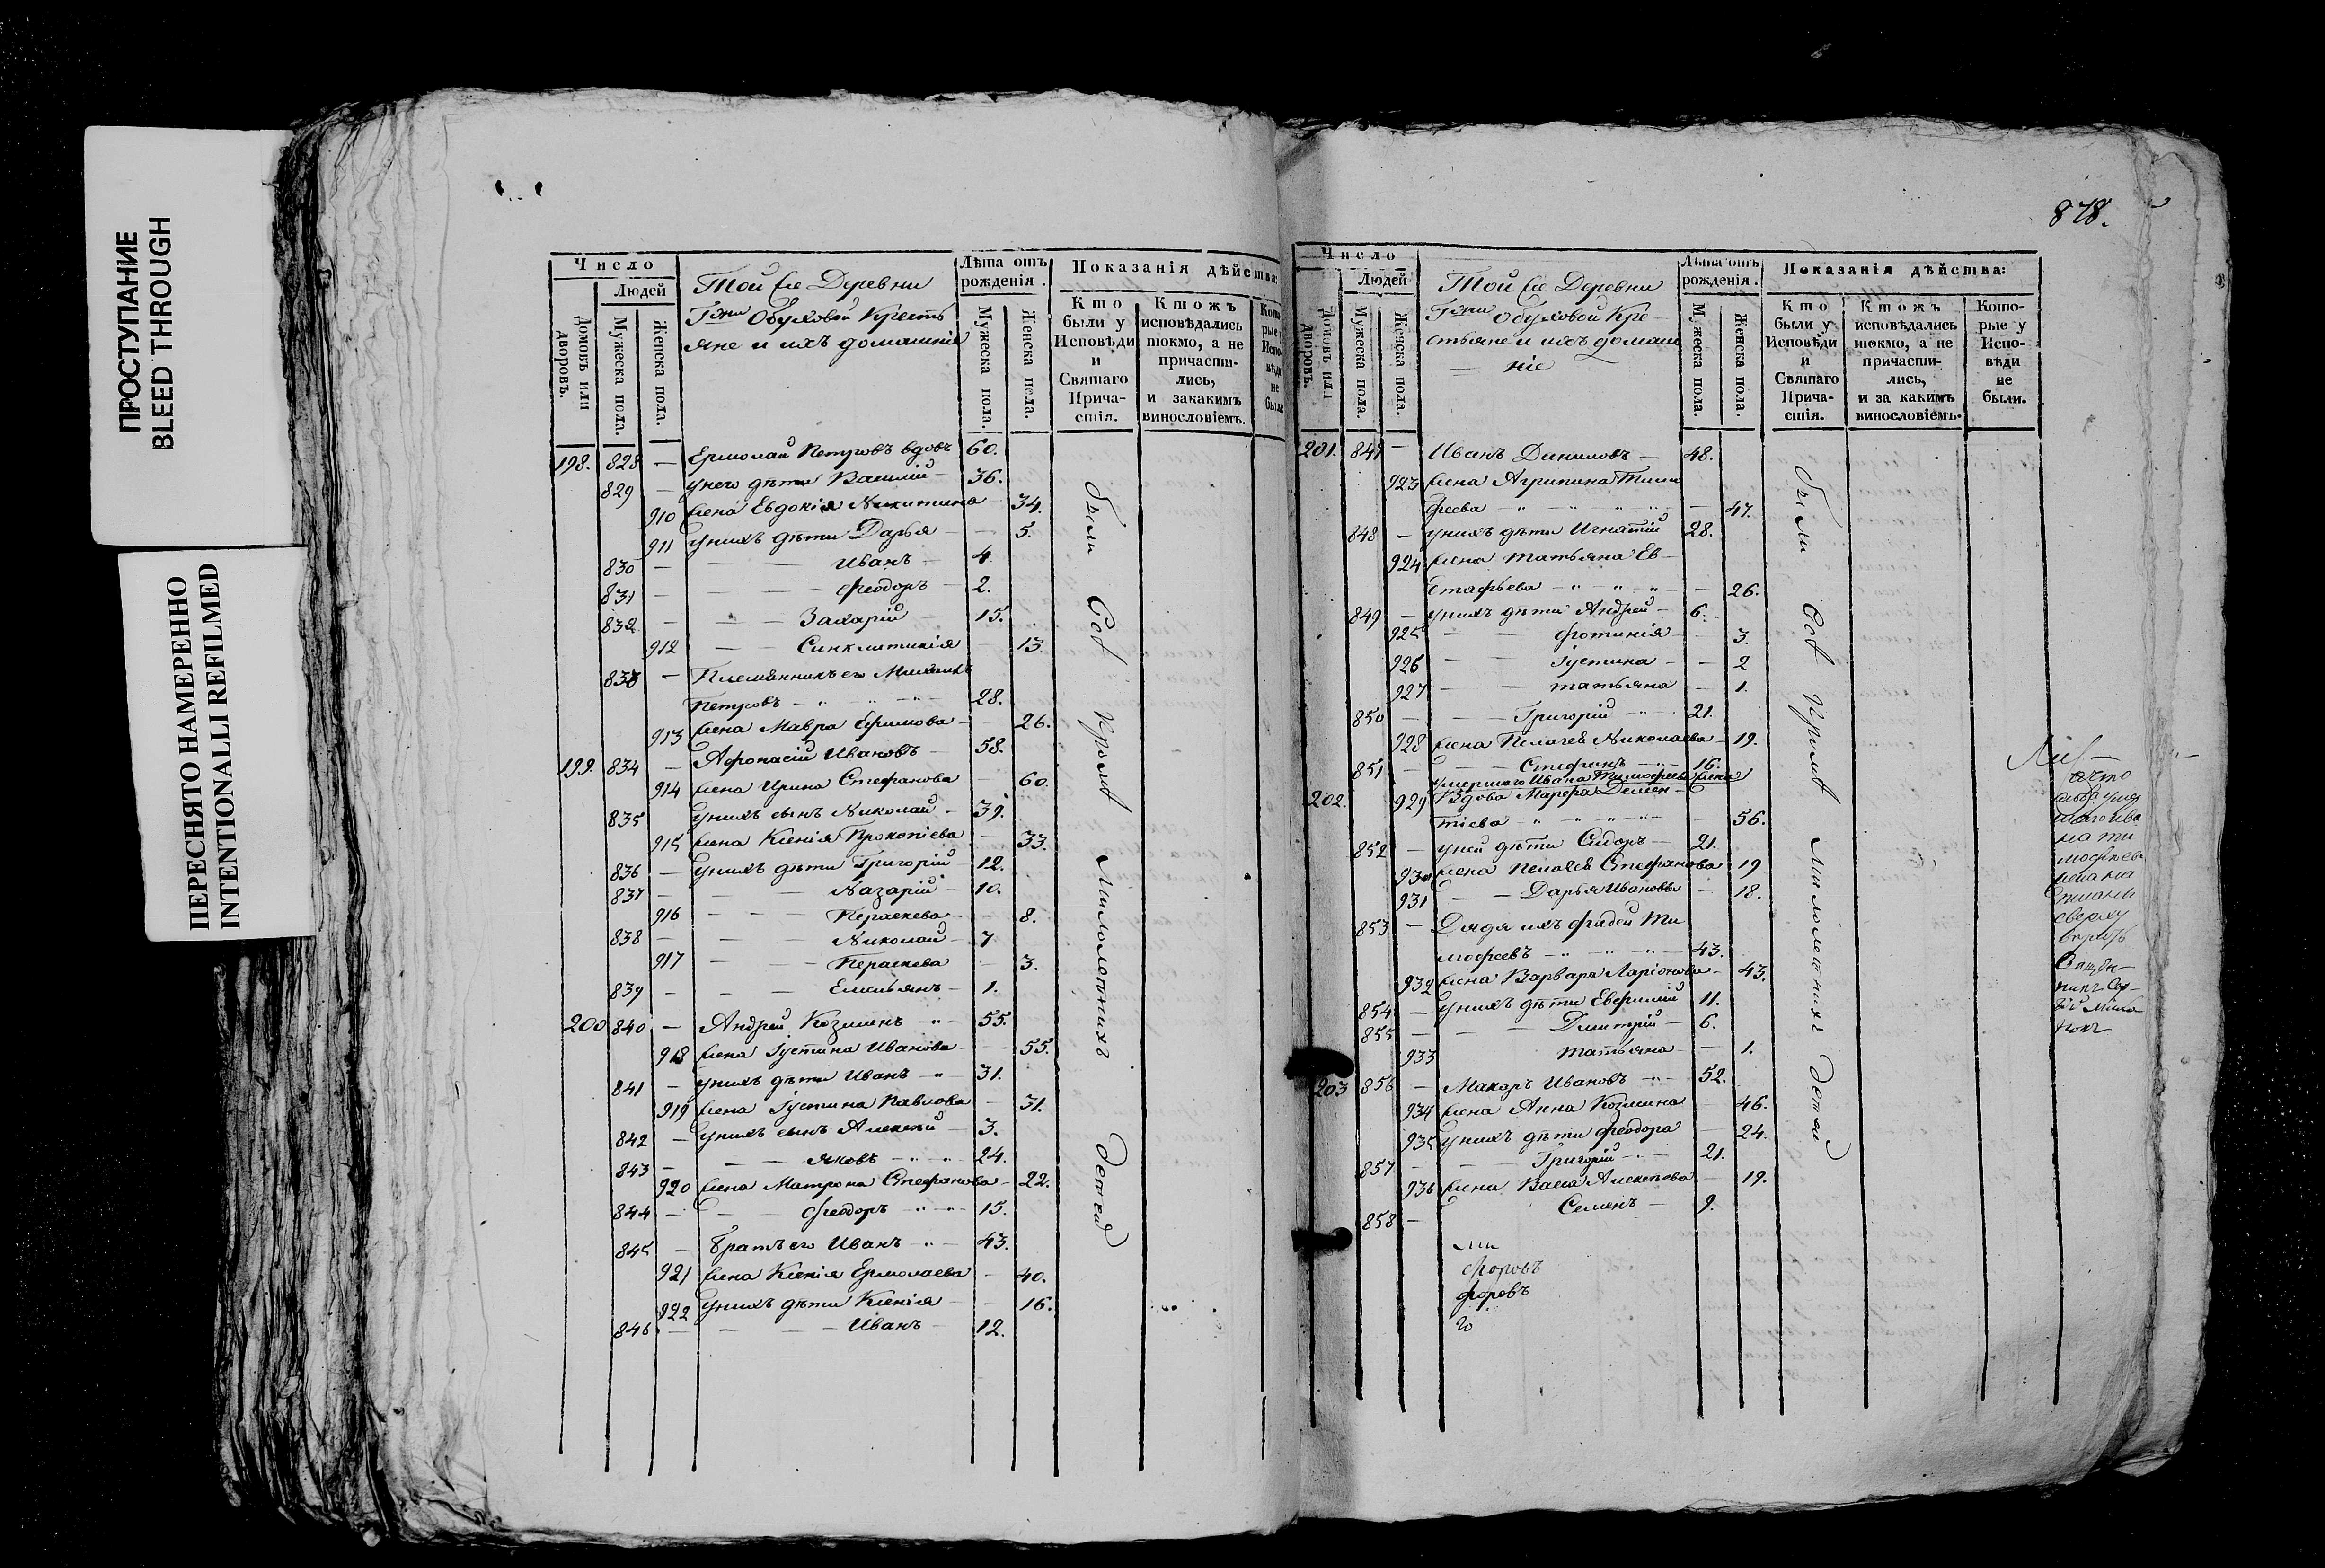 ПРОСТУПАНИЕ
BLEED THROUGH
ПЕРЕСНЯТО НАМЕРЕННО
INTENTIONALLI REFILMED
Число
Людей
Домовъ или дворовъ.
Мужеска пола.
Женска пола.
Той же Деревни
Гжи Обуховой Кресть
яне и ихъ домашнiе
Лѣта отъ рожденiя.
Мужеска пола.
Женска пола.
Показанiя дѣйства:
Кто были у Исповѣди и Святаго Причастiя.
Ктожъ исповѣдались токмо, а не причастились, и закакимъ винословiемъ.
Которые у Исповѣди не были
198. 828 — Ермолай Петровъ вдовъ 60.
829 — у него дѣти Василiй — 36.
910 жена Евдокiя Никитина 34.
911 у нихъ дѣти Дарья — 5.
830 — Иванъ — 4
831 — Феодоръ — 2.
832 — Захарiй — 15.
912 — Синклитикiя 13.
833 — Племянникъ его
Петровъ — 28.
913 жена Мавра Ефимова — 26.
199. 834 — Афонасiй Ивановъ — 58.
914 жена Ирина Стефанова — 60.
835 у нихъ сынъ Николай — 39.
915 жена Ксенiя Прокопiева — 33.
836 — у нихъ дѣти Григорiй — 12.
837 — Назарiй — 10.
916 — Параскева — 8.
838 — Николай — 7
917 — Параскева — 3.
839 — Емельянъ — 1.
200 840 — Андрей Козминъ — 55.
918 жена Iустина Иванова — 55.
841 — у нихъ дѣти Иванъ — 31.
919 жена Iустина Павлова — 31.
842 — у нихъ сынъ Алексѣй — 3.
843 — Яковъ — 24.
920 жена Матрона Стефанова — 22.
844 — Феодоръ — 15.
845 — братъ его Иванъ — 43.
921 жена Ксенiя Ермолаева — 40.
922 у нихъ дѣти Ксенiя — 16.
846 — Иванъ — 12.
были
малолетнихъ детей
878.
Число
Людей
Домовъ или дворовъ.
Мужеска пола.
Женска пола.
Той же Деревни
Гжи Обуховой Кре-
стьяне и ихъ домаш
— нiе
Лѣта отъ рожденiя.
Мужеска пола.
Женска пола.
Показанiя дѣйства:
Кто были у Исповѣди и Святаго Причастiя.
Ктожъ исповѣдались токмо, а не причастились, и за какимъ винословiемъ.
Которые у Исповѣди не были.
201. 847 — Иванъ Даниловъ — 48.
923 жена Агрипина Тимо
феева — 47.
848 — у нихъ дѣти Игнатiй 28.
924 жена Татьяна Ев-
стафьева — 26.
849 — у нихъ дѣти Андрей — 6.
925 — Фотинiя — 3.
926 — Iустина — 2
927 — Татьяна — 1.
850 — Григорiй — 21.
928 жена Пелагея Николаева — 19.
851 — Стефанъ — 16.
умершаго Ивана Тимофеева жена
202. 929 Вдова Марфа Демен-
тiева — 56.
852 — у ней дѣти Сидоръ — 21.
930 жена Пелагея Стефанова 19
931 — Дарья Иванова — 18.
853 — Дядя ихъ Фадей Ти
мофеевъ — 43.
932 жена Варвара Ларiонова — 43.
854 — у нихъ дѣти Евфимiй 11.
855 — Дмитрiй — 6.
933 Татьяна — 1.
203 856 — Макаръ Ивановъ — 52.
934 жена Анна Козмина — 46.
935 у нихъ дѣти Феодора — 24.
857 — Григорiй — 21.
936 жена Васса Алексѣева — 19.
858 — Семенъ — 9.
были
малолетнихъ детей
что